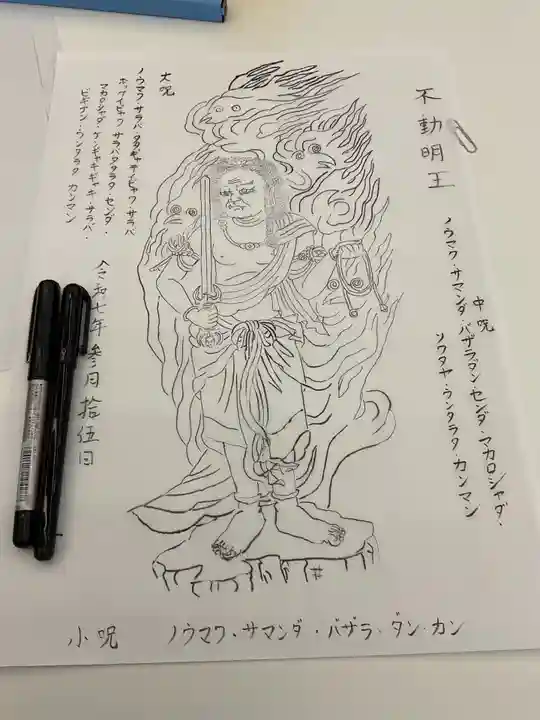 不動明王
中呪
ノウマク・サマンダ・バザラダン・センダ・マカロシャダ・
ソワタヤ・ウンタラタ・カンマン
大呪
ノウマク サラバ
サラバ
サラバタタラタ・センダ・
マカロシャダ・ケンギャキギャキ・サラバ・
ビギナン・ウンタラタ カンマン
令和七年 参月 拾伍日
小呪 ノウマク・サマンダ・バザラ・ダン・カン